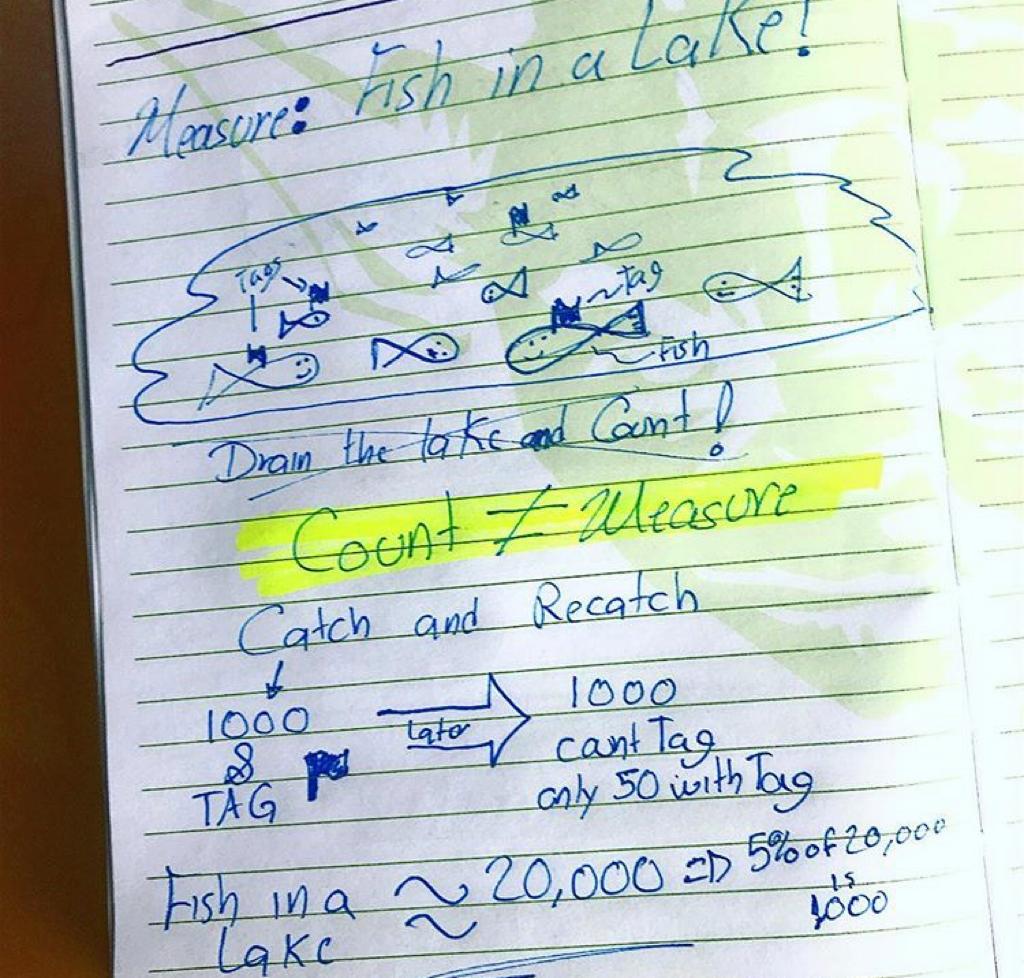 Measure: Fish in a Lake!
Tags
Tag
Fish
Drain the lake and Count!
Count ≠ Measure
Catch and Recatch
1000
&
TAG
Later
1000
cant Tag
only 50 with Tag
Fish in a
Lake
≈ 20,000 => 5% of 20,000
is
1000